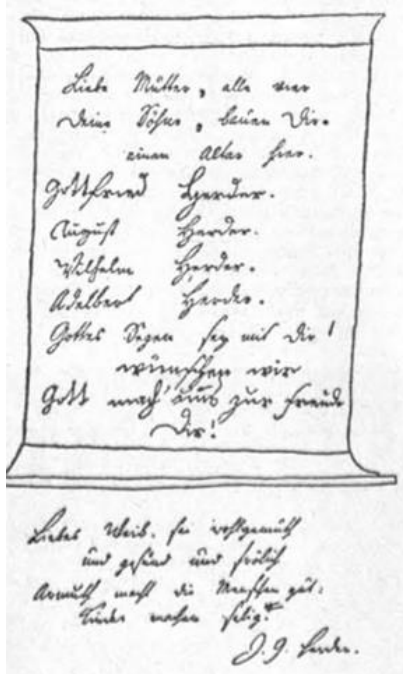 Liebe Mutter, alle vier
Deine Söhne, bauen Dir
einen Altar hier.
Gottfried Herder.
August Herder.
Wilhelm Herder.
Adelbert Herder.
Gottes Segen sey mit Dir!
wünschen wir
Gott mach' uns zur Freude
Dir!
Liebes Weib. sei wohlgemuth
und gesund und frölich
Armuth macht die Menschen gut:
Kinder machen selig.
J. G. Herder.